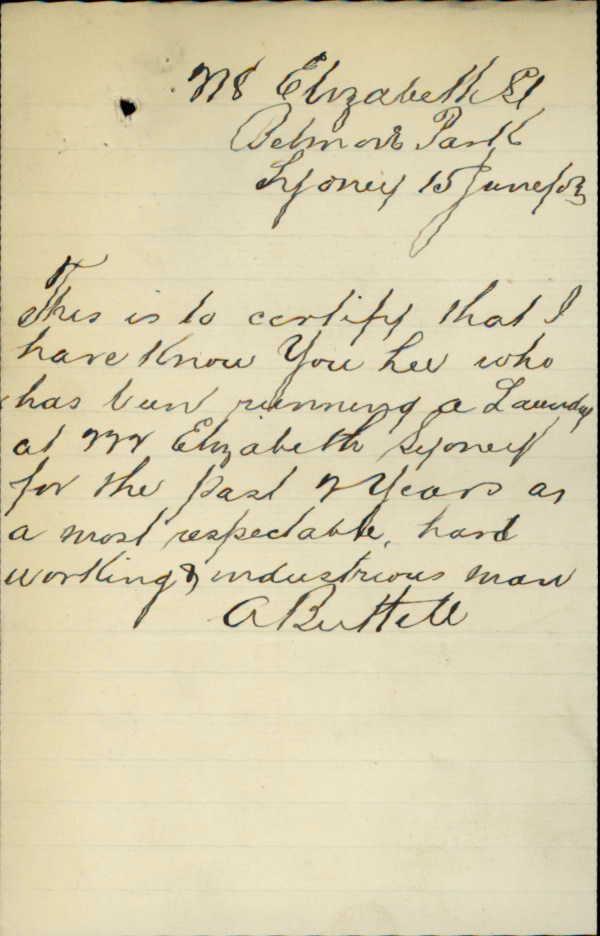 Elizabeth St
Belmore Park
Sydney 15 June/03
This is to certify that I
have Know You Lee who
has been running a Laundry
at Elizabeth Sydney
for the past 2 Years as
a most respectable, hard
working & industrious man